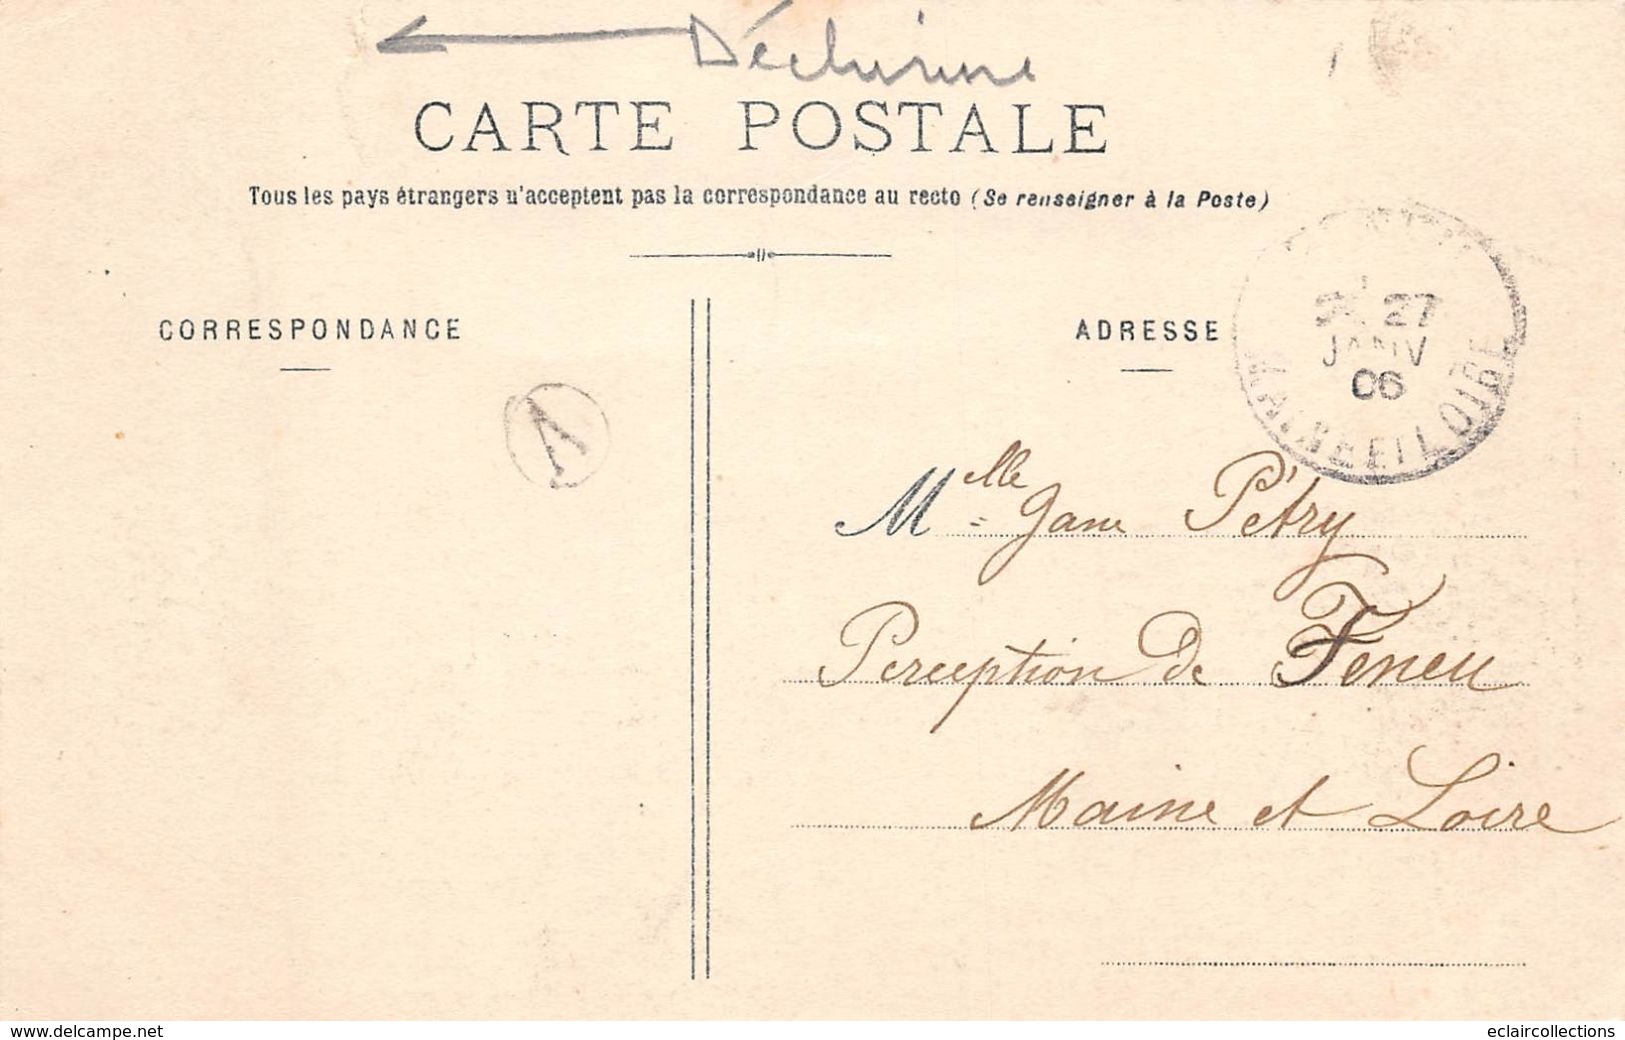 Déchirure
CARTE POSTALE
Tous les pays étrangers n'acceptent pas la correspondance au recto (Se renseigner à la Poste)
CORRESPONDANCE
ADRESSE
27
JANV
06
MAINE ET LOIRE
A
Mlle Jane Pétry
Perception de Feneu
Maine et Loire
www.delcampe.net
eclaircollections